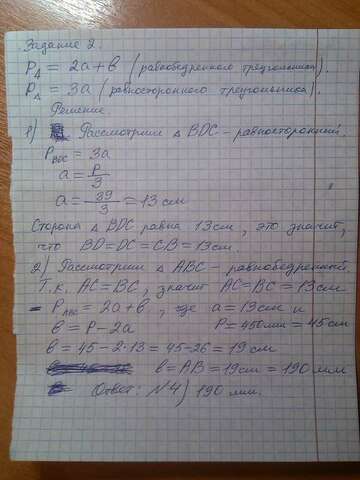 Задание 2.
P∆ = 2a + в (равнобедренного треугольника).
P∆ = 3a (равностороннего треугольника).
Решение.
1) Рассмотрим ∆ BDC - равносторонний.
P BDC = 3a
a = P/3
a = 39/3 = 13 см
Сторона ∆ BDC равна 13см, это значит,
что BD=DC=CB=13см.
2) Рассмотрим ∆ ABC - равнобедренный
Т.к. AC=BC, значит AC=BC=13см
- P ABC = 2a+в, где a=13см и
в = P-2a P=450мм=45см
в = 45-2·13=45-26=19см
в=AB=19см=190мм
Ответ: №4) 190 мм.